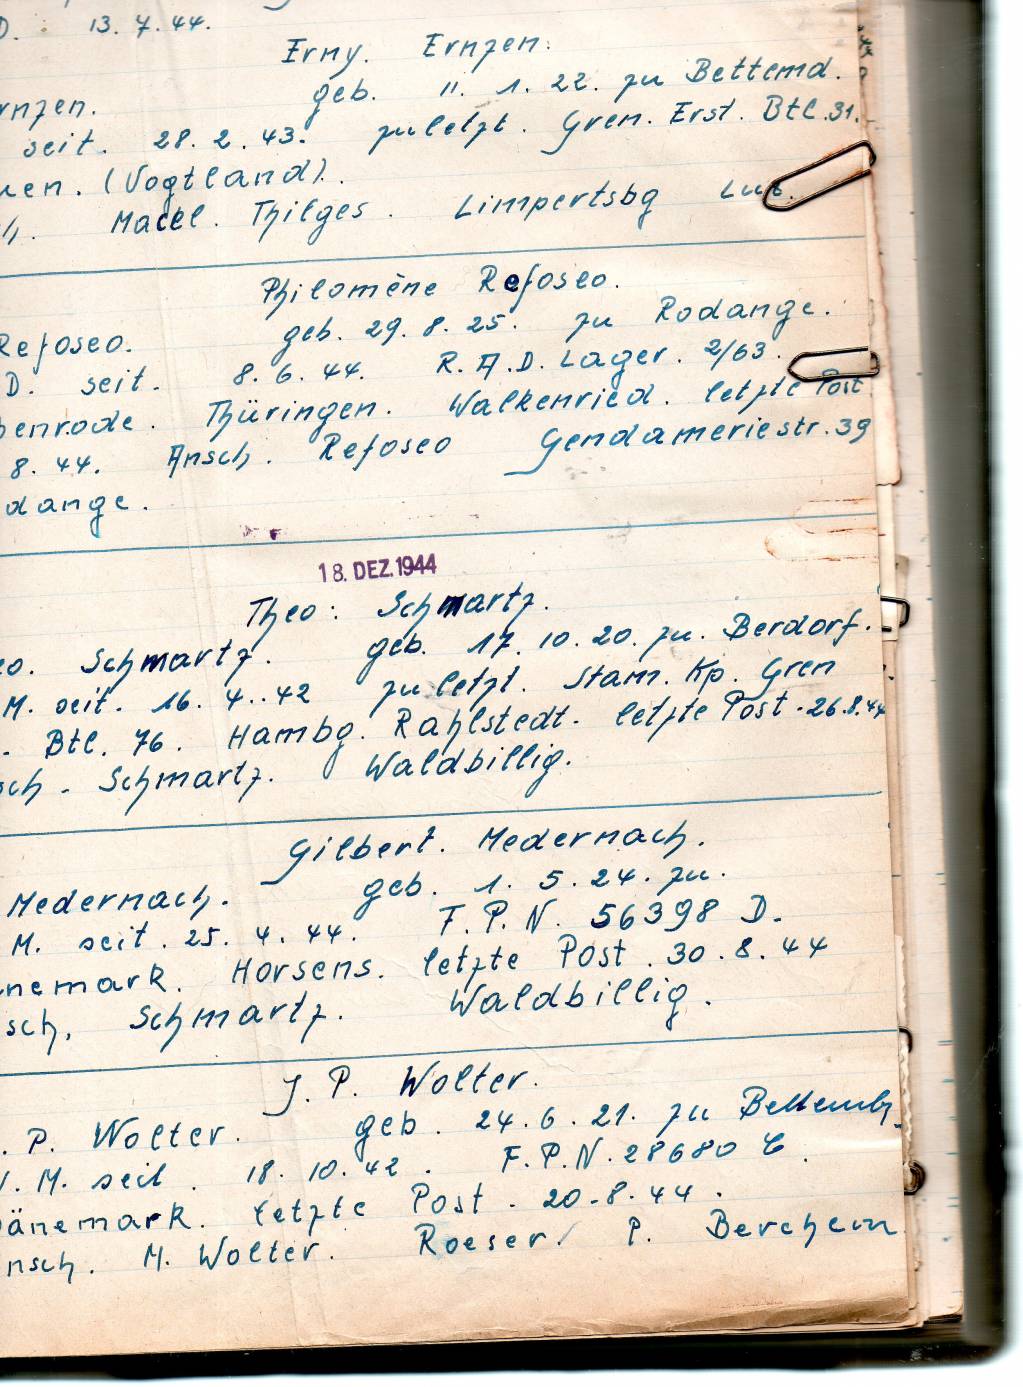 D. 13.7.44.
Erny. Ernzen.
rnzen. geb. 11. 1. 22. zu Bettemd.
seit. 28. 2. 43. zuletzt. Gren. Erst. Btl. 31.
uen. (Vogtland).
Macel. Thilges. Limpertsbg Lux.
Philomène Refoseo.
Refoseo. geb. 29. 8. 25. zu Rodange.
D. seit. 8. 6. 44. R. A. D. Lager. 2/63.
benrode. Thüringen. Walkenried. letzte Post
8. 44. Ansch. Refoseo Gendameriestr. 39
dange.
18. DEZ. 1944
Theo: Schmartz.
eo. Schmartz. geb. 17. 10. 20. zu. Berdorf.
M. seit. 16. 4. 42 zuletzt. Stam. Kp. Gren
. Btl. 76. Hambg. Rahlstedt. letzte Post. 26.8.44
sch. Schmartz. Waldbillig.
Gilbert. Medernach.
Medernach. geb. 1. 5. 24. zu.
M. seit. 25. 4. 44. F. P. N. 56398 D.
nemark. Horsens. letzte Post. 30. 8. 44
sch, Schmartz. Waldbillig.
J. P. Wolter.
. P. Wolter. geb. 24. 6. 21. zu Bettembg.
M. seit. 18. 10. 42. F. P. N. 28680 C.
änemark. letzte Post. 20. 8. 44.
nsch. M. Wolter. Roeser/ P. Berchem